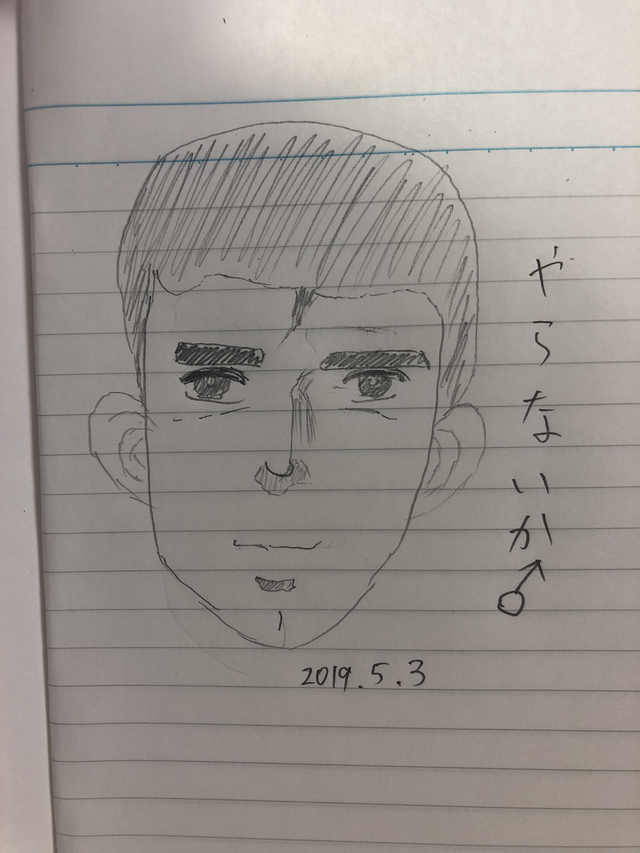 やらないか♂
2019.5.3